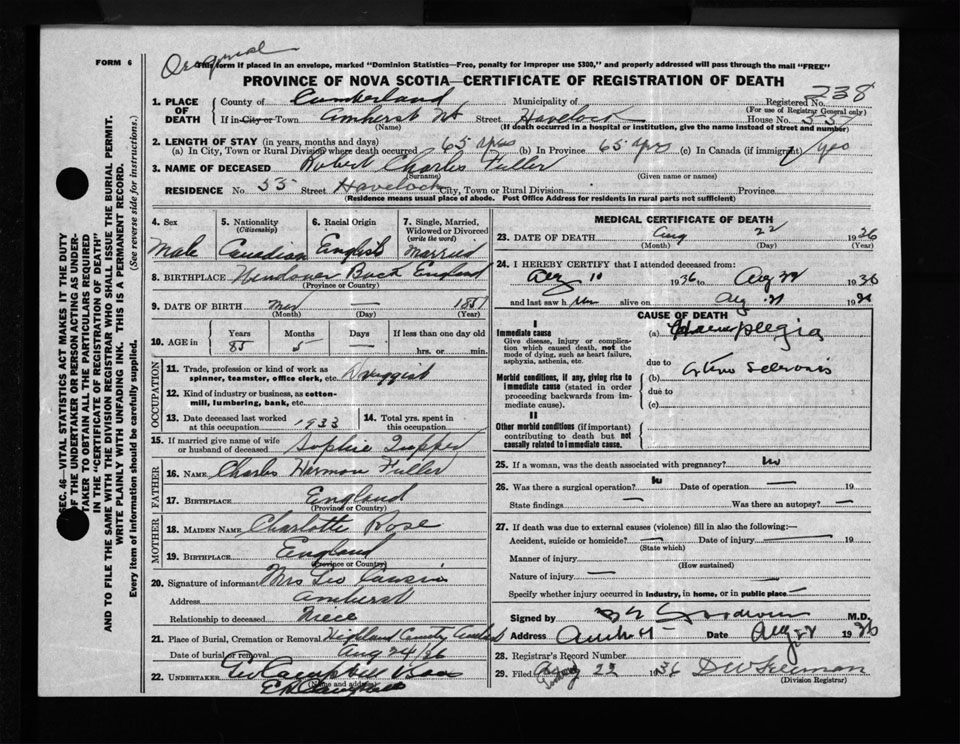 Original
FORM 6
This form if placed in an envelope, marked "Dominion Statistics—Free, penalty for improper use $300," and properly addressed will pass through the mail "FREE"
PROVINCE OF NOVA SCOTIA—CERTIFICATE OF REGISTRATION OF DEATH
238
SEC. 46—VITAL STATISTICS ACT MAKES IT THE DUTY
OF THE UNDERTAKER OR PERSON ACTING AS UNDER-
TAKER TO OBTAIN ALL THE PARTICULARS REQUIRED
IN THE "CERTIFICATE OF REGISTRATION OF DEATH"
AND TO FILE THE SAME WITH THE DIVISION REGISTRAR WHO SHALL ISSUE THE BURIAL PERMIT.
WRITE PLAINLY WITH UNFADING INK. THIS IS A PERMANENT RECORD.
Every item of information should be carefully supplied. (See reverse side for instructions.)
1. PLACE OF DEATH County of Cumberland Municipality of Registered No.
(For use of Registrar General only)
If in City or Town Amherst NS Street Havelock House No. 55
(Name) (If death occurred in a hospital or institution, give the name instead of street and number)
2. LENGTH OF STAY (in years, months and days)
(a) In City, Town or Rural Division where death occurred 65 yrs (b) In Province 65 yrs (c) In Canada (if immigrant) yrs
3. NAME OF DECEASED Robert Charles Fuller
(Surname) (Given name or names)
RESIDENCE No. 55 Street Havelock City, Town or Rural Division Province
(Residence means usual place of abode. Post Office Address for residents in rural parts not sufficient)
4. Sex 5. Nationality 6. Racial Origin 7. Single, Married,
(Citizenship) Widowed or Divorced
(write the word)
Male Canadian English Married
8. BIRTHPLACE Wendover Buck England
(Province or Country)
9. DATE OF BIRTH Mar — 1851
(Month) (Day) (Year)
10. AGE in Years Months Days If less than one day old
85 5 — hrs. or min.
OCCUPATION
11. Trade, profession or kind of work as
spinner, teamster, office clerk, etc. Druggist
12. Kind of industry or business, as cotton-
mill, lumbering, bank, etc.
13. Date deceased last worked at this occupation 1933 14. Total yrs. spent in this occupation
15. If married give name of wife
or husband of deceased Sophie Tupper
FATHER
16. NAME Charles Harmon Fuller
17. BIRTHPLACE England
(Province or Country)
MOTHER
18. MAIDEN NAME Charlotte Rose
19. BIRTHPLACE England
(Province or Country)
20. Signature of informant Mrs Geo
Address Amherst
Relationship to deceased Niece
21. Place of Burial, Cremation or Removal Highland Amherst
Date of burial or removal Aug 24/36
22. UNDERTAKER Campbell
(Name and address)
MEDICAL CERTIFICATE OF DEATH
23. DATE OF DEATH Aug 22 1936
(Month) (Day) (Year)
24. I HEREBY CERTIFY that I attended deceased from:
Aug 10 1936 to Aug 22 1936
and last saw him alive on Aug 21 1936
CAUSE OF DEATH
I
Immediate cause (a) Hemiplegia
Give disease, injury or compli-
cation which caused death, not the
mode of dying, such as heart failure,
asphyxia, asthenia, etc.
due to
Morbid conditions, if any, giving rise to
immediate cause (stated in order
proceeding backwards from im-
mediate cause).
(b) Arterio Sclerosis
due to
(c)
II
Other morbid conditions (if important)
contributing to death but not
causally related to immediate cause.
25. If a woman, was the death associated with pregnancy? No
26. Was there a surgical operation? No Date of operation — 19
State findings — Was there an autopsy? —
27. If death was due to external causes (violence) fill in also the following:—
Accident, suicide or homicide? — Date of injury 19
(State which)
Manner of injury —
(How sustained)
Nature of injury —
Specify whether injury occurred in industry, in home, or in public place —
Signed by M.D.
Address Amherst Date Aug 22 1936
28. Registrar's Record Number
29. Filed Aug 22 1936
(Division Registrar)